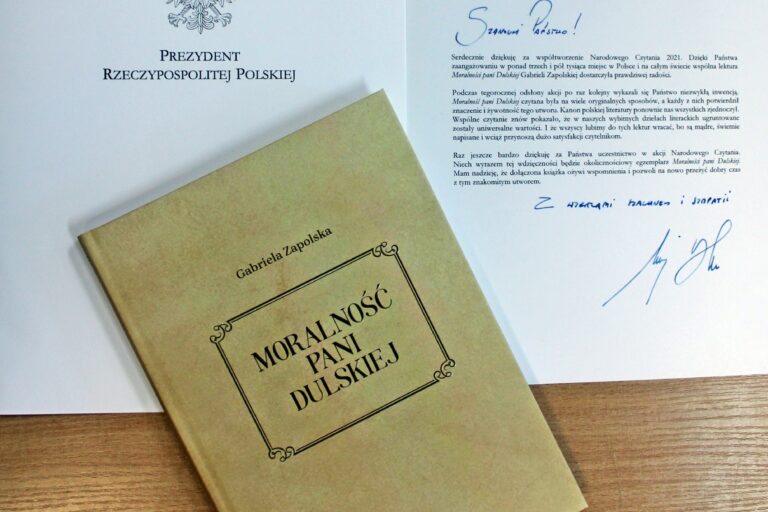 PREZYDENT
RZECZYPOSPOLITEJ POLSKIEJ
Szanowni Państwo!
Serdecznie dziękuję za współtworzenie Narodowego Czytania 2021. Dzięki Państwa
zaangażowaniu w ponad trzech i pół tysiąca miejsc w Polsce i na całym świecie wspólna lektura
Moralności pani Dulskiej Gabrieli Zapolskiej dostarczyła prawdziwej radości.
Podczas tegorocznej odsłony akcji po raz kolejny wykazali się Państwo niezwykłą inwencją.
Moralność pani Dulskiej czytana była na wiele oryginalnych sposobów, a każdy z nich potwierdził
znaczenie i żywotność tego utworu. Kanon polskiej literatury ponownie nas wszystkich zjednoczył.
Wspólne czytanie znów pokazało, że w naszych wybitnych dziełach literackich ugruntowane
zostały uniwersalne wartości. I że wszyscy lubimy do tych lektur wracać, bo są mądre, świetnie
napisane i wciąż przynoszą dużo satysfakcji czytelnikom.
Raz jeszcze bardzo dziękuję za Państwa uczestnictwo w akcji Narodowego Czytania.
Niech wyrazem tej wdzięczności będzie okolicznościowy egzemplarz Moralności pani Dulskiej.
Mam nadzieję, że dołączona książka ożywi wspomnienia i pozwoli na nowo przeżyć dobry czas
z tym znakomitym utworem.
Z wyrazami szacunku i sympatii
Gabriela Zapolska
MORALNOŚĆ
PANI
DULSKIEJ